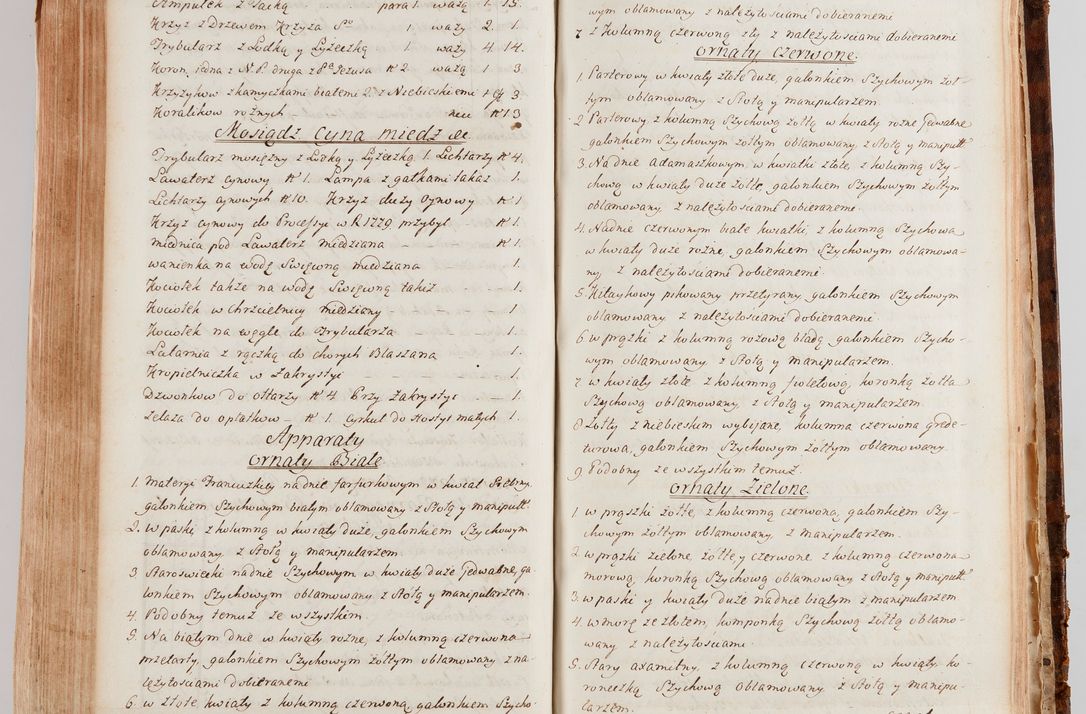 Ampułek z Tacką para 1. ważą 1. 15.
Krzyż z Drzewem Krzyża Sgo 1 waży 2. 1.
Trybularz z Łodką y Łyżeczką 1 waży 4 14.
Koron, jedna z N. P. druga z Pa Jezusa N 2 ważą 1 3
Krzyżykow z kamyczkami białemi 2. z Niebieskiemi
Koralikow rożnych N 13
Mosiądz Cyna miedź &c
Trybularz mosiężny z Łodką y Łyżeczką 1. Lichtarzy N 4.
Lawaterz cynowy N 1. Lampa z gałkami takaż 1.
Lichtarzy cynowych N 10. Krzyż duży Cynowy N 1
Krzyż cynowy do Processyi w R 1779 przybył N 1.
miednica pod Lawaterz miedziana - - N 1.
wanienka na wodę Święconą miedziana 1.
Kociołek także na wodę Święconą takiż 1.
Kociołek w Chrzcielnicy miedziany - - 1.
Kociołek na węgle do Trybularza - - 1.
Latarnia z rączką do chorych Blaszana 1.
Kropielniczka w Zakrystyi - - 1.
Dzwonkow do ołtarzy N 4 Przy Zakrystyi - 1.
Zelaza do opłatkow N 1. Cyrkul do Hostyi małych 1.
Apparaty
Ornaty Białe
1. Materyi Francuzkiey nadnie farfurkowym w kwiat Srebrny
galonkiem Szychowym białym oblamowany z Stołą y manipulł.
2. w paski z kolumną w kwiaty duże, galonkiem Szychowym
oblamowany, z Stołą y manipularzem.
3. Staroswiecki nadnie Szychowym w kwiaty duże Jedwabne, ga-
lonkiem Szychowym oblamowany z Stołą y manipularzem.
4. Podobny temuż ze wszystkim.
5. Na białym dnie w kwiaty rożne, z kolumną czerwoną
przetarty, galonkiem Szychowym żółtym oblamowany z na-
leżytościami dobieranemi
6. w złote kwiaty z kolumną czerwoną galonkiem Szycho-
wym oblamowany z należytościami dobieranemi
7 z Kolumną czerwoną zły z należytościami dobieranemi
Ornaty Czerwone.
1. Parterowy w kwiaty złote duże, galonkiem Szychowym żół-
tym oblamowany z Stołą y manipularzem.
2 Parterowy z kolumną Szychową żółtą w kwiaty rożne Jedwabne
galonkiem Szychowym żółtym oblamowany z Stołą y manipulł
3. Nadnie Adamaszkowym, w kwiatki złote, z kolumną Szy-
chową w kwiaty duże żółte, galonkiem Szychowym żółtym
oblamowany z należytościami dobieranemi.
4. Nadnie czerwonym białe kwiatki, z kolumną Szychową
w kwiaty duże rożne, galonkiem Szychowym oblamowa-
ny z należytościami dobieranemi.
5. Kitaykowy pikowany przetyrany galonkiem Szychowym
oblamowany z należytościami dobieranemi.
6. w prążki z kolumną rożową bladą galonkiem Szycho-
wym oblamowany z Stołą y manipularzem.
7 w kwiaty złote z kolumną fioletową, koronką żółtą
Szychową oblamowany, z Stołą y manipularzem.
8 Żółty z niebieskim wybijane, kolumna czerwona grode-
turowa, galonkiem Szychowym żółtym oblamowany.
9 Podobny ze wszystkim temuż.
Ornaty Zielone
1 w prążki żółte, z kolumną czerwoną, galonkiem Szy-
chowym żółtym oblamowany, z manipularzem.
2 w prążki zielone, żółte, y czerwone z kolumną czerwoną
morową, koronką Szychową oblamowany z Stołą y manipulł
3. w paski y kwiaty duże nadnie białym z manipularzem
4. w morę ze złotem, kamponką Szychową żółtą oblamo-
wany z należytościami.
5. Stary axamitny, z kolumną czerwoną w kwiaty ko-
roneczką Szychową oblamowany z Stołą y manipu-
larzem.